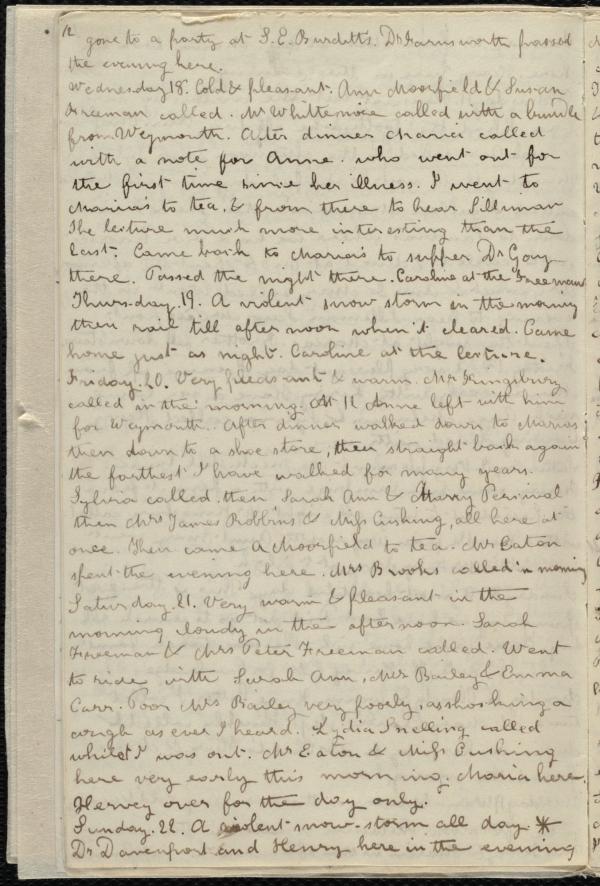 12 gone to a party at S. E. Burditts. Dr Farnsworth passed
the evening here.
Wednesday 18. Cold & pleasant. Ann Moorfield & Susan
Freeman called. Mr Whittemore called with a bundle
from Weymouth. After dinner Maria called
with a note for Anne. who went out for
the first time since her illness. I went to
Maria's to tea. & from there to hear Silliman
The lecture much more interesting than the
last. Came back to Maria's to supper Dr Gouy
there. Passed the night there. Caroline at the Freemans
Thursday. 19. A violent snow storm in the morning
then rain till afternoon when't cleared. Came
home just as night. Caroline at the lecture.
Friday. 20. Very pleasant & warm. Mr Kingsbury
called in the morning. At 12 Anne left with him
for Weymouth. After dinner walked down to Marias
then down to a shoe store, then straight back again
the farthest I have walked for many years.
Sylvia called. then Sarah Ann & Harry Percival
then Mrs James Robbins & Miss Cushing, all here at
once. Then came A Moorfield to tea. Mr Eaton
spent the evening here. Mrs Brooks called in morning
Saturday. 21. Very warm & pleasant in the
morning cloudy in the afternoon. Sarah
Freeman & Mrs Peter Freeman called. Went
to ride with Sarah Ann, Mrs Bailey & Emma
Carr. Poor Mrs Bailey very poorly, as shocking a
cough as ever I heard. Lydia Snelling called
whilst I was out. Mr Eaton & Miss Cushing
here very early this morning. Maria here.
Hervey over for the day only.
Sunday. 22. A violent snow-storm all day. *
Dr Davenport and Henry here in the evening